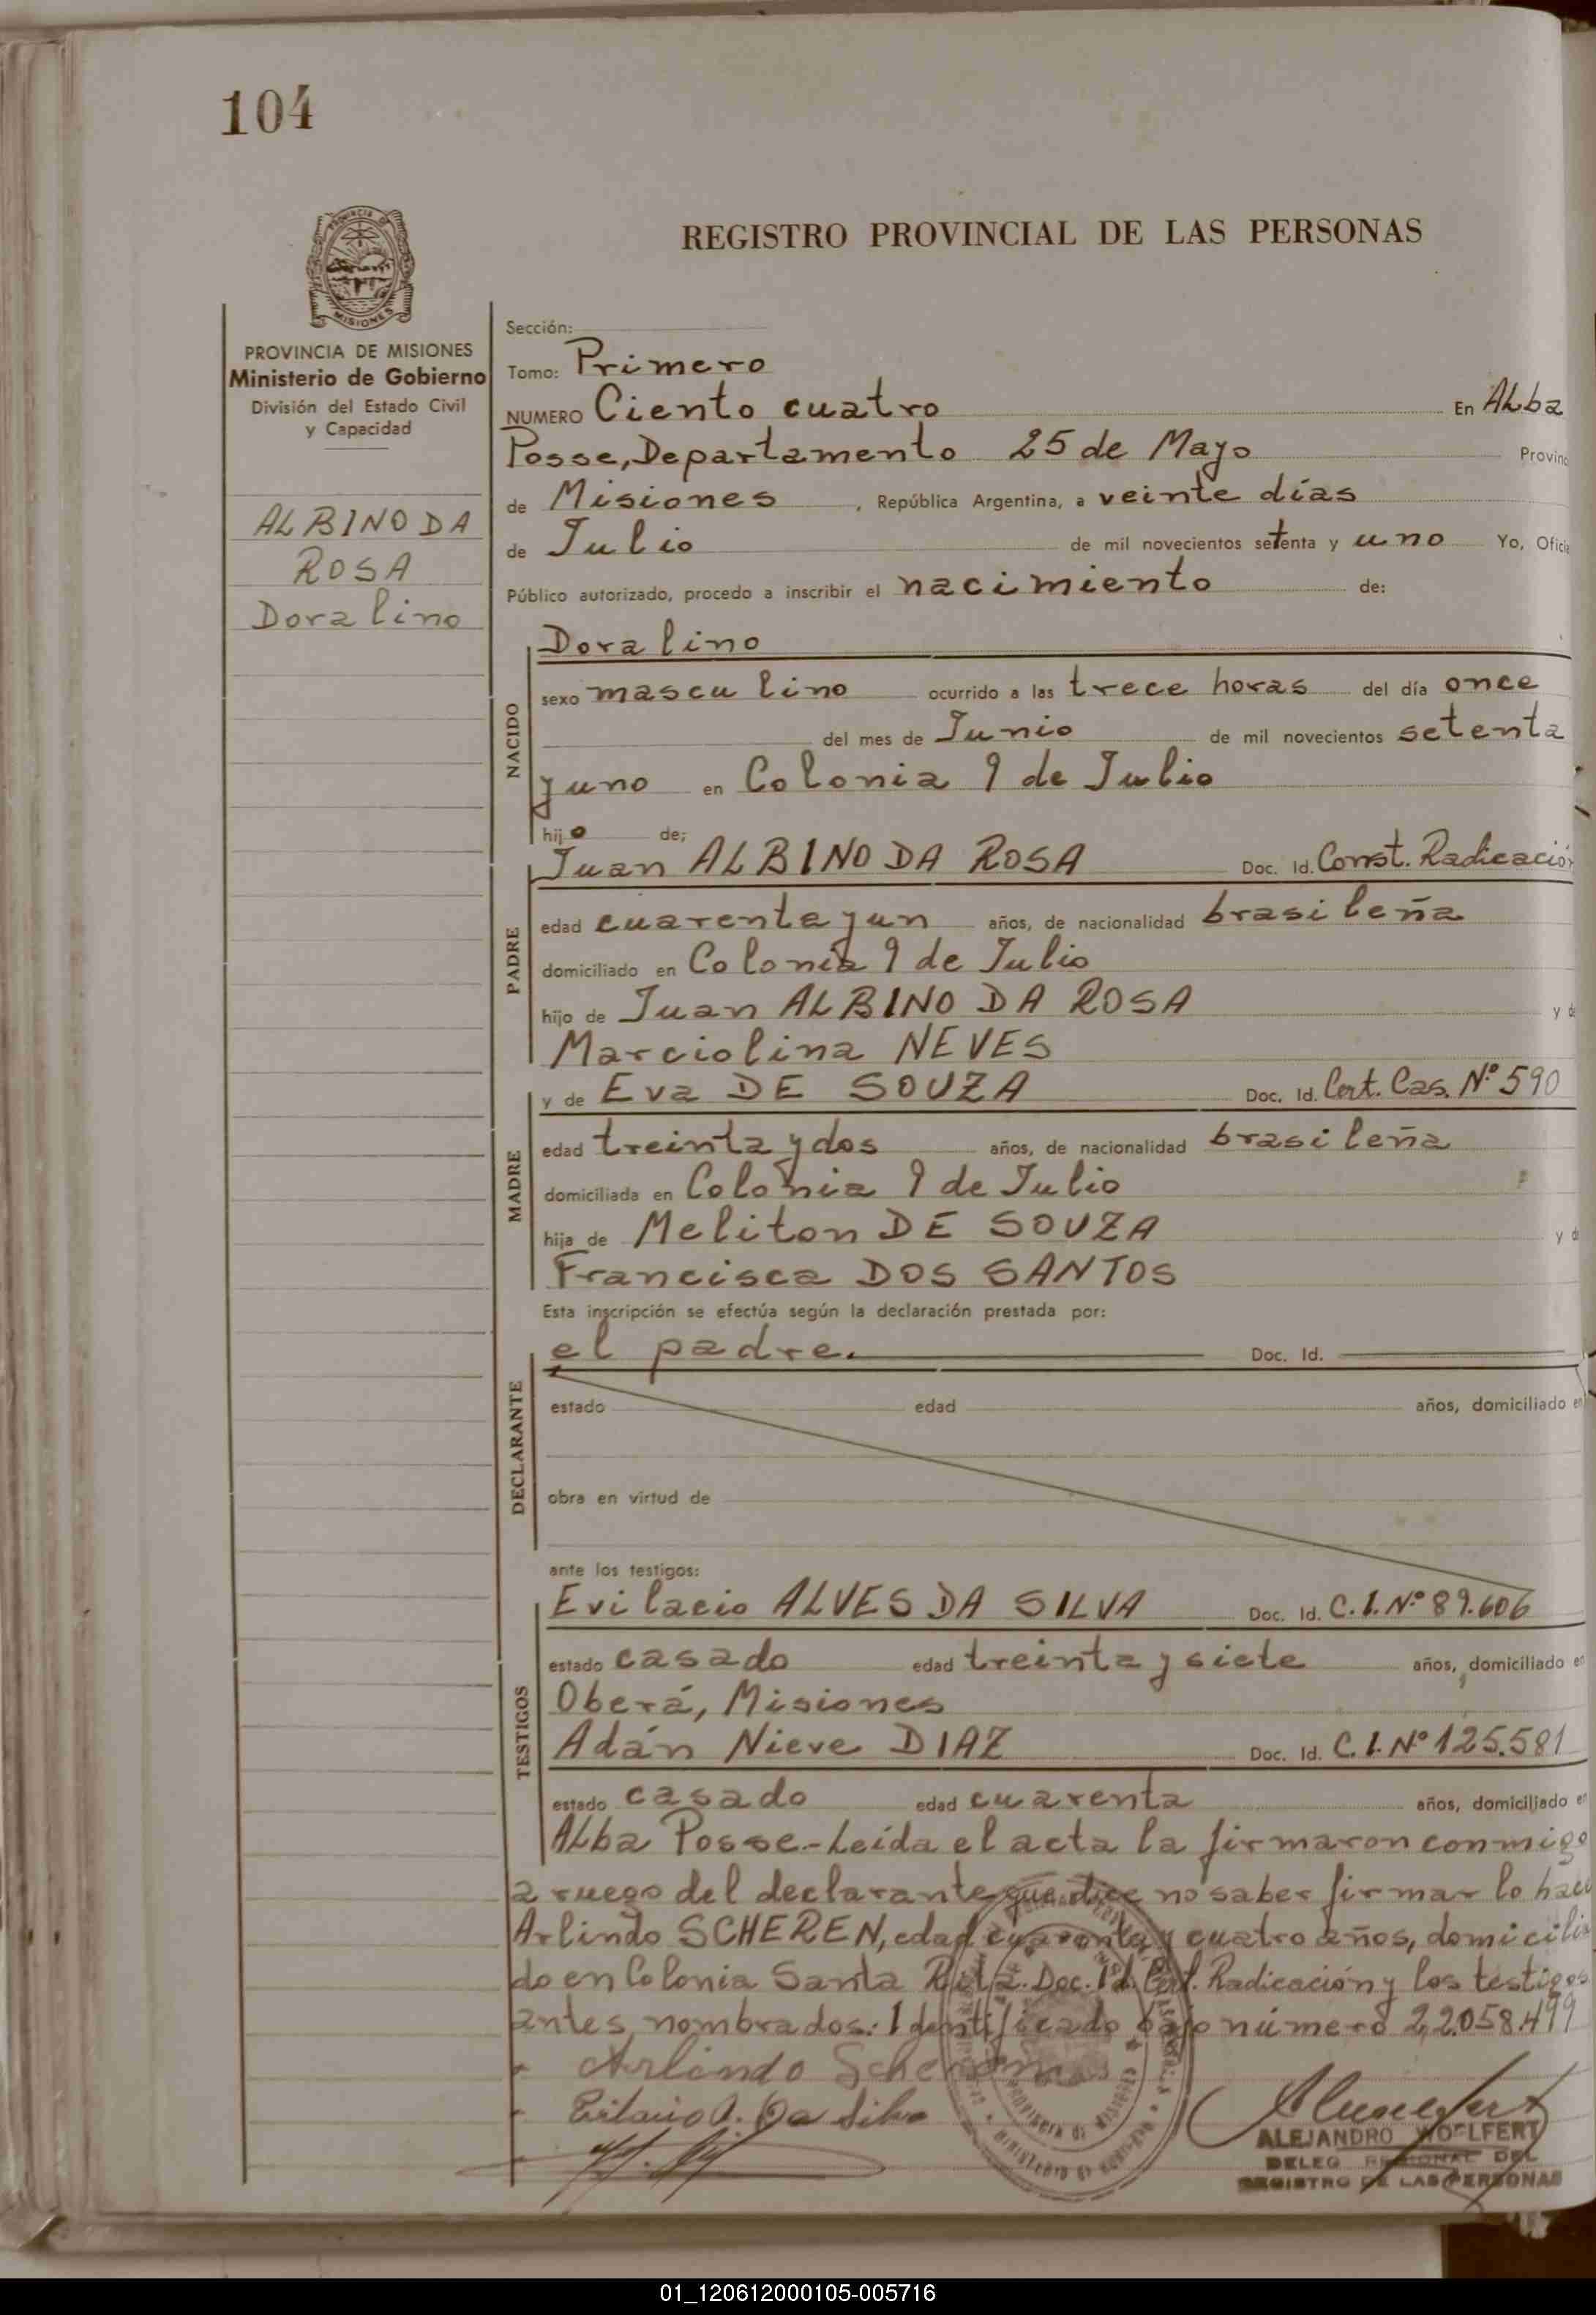 104
PROVINCIA DE
MISIONES
REGISTRO PROVINCIAL DE LAS PERSONAS
PROVINCIA DE MISIONES
Ministerio de Gobierno
División del Estado Civil
y Capacidad
ALBINO DA
ROSA
Doralino
Sección:
Tomo: Primero
NUMERO Ciento cuatro En Alba
Posse, Departamento 25 de Mayo Provinc
de Misiones , República Argentina, a veinte días
de Julio de mil novecientos setenta y uno Yo, Oficia
Público autorizado, procedo a inscribir el nacimiento de:
NACIDO
Doralino
sexo masculino ocurrido a las trece horas del día once
del mes de Junio de mil novecientos setenta
y uno en Colonia 9 de Julio
hijo de;
PADRE
Juan ALBINO DA ROSA Doc. Id. Const. Radicación
edad cuarenta y un años, de nacionalidad brasileña
domiciliado en Colonia 9 de Julio
hijo de Juan ALBINO DA ROSA y de
Marciolina NEVES
MADRE
y de Eva DE SOUZA Doc. Id. Cert. Cas. Nº 590
edad treinta y dos años, de nacionalidad brasileña
domiciliada en Colonia 9 de Julio
hija de Meliton DE SOUZA y d
Francisca DOS SANTOS
Esta inscripción se efectúa según la declaración prestada por:
DECLARANTE
el padre. Doc. Id.
estado edad años, domiciliado en
obra en virtud de
ante los testigos:
TESTIGOS
Evilacio ALVES DA SILVA Doc. Id. C.I. Nº 89.606
estado casado edad treinta y siete años, domiciliado en
Oberá, Misiones
Adán Nieve DIAZ Doc. Id. C.I. Nº 125.581
estado casado edad cuarenta años, domiciliado en
Alba Posse.- Leída el acta la firmaron conmigo
a ruego del declarante que dice no saber firmar lo hace
Arlindo SCHEREN, edad cuarenta y cuatro años, domicilia
do en Colonia Santa Rita. Doc. Id. Cert. Radicación y los testigos
antes nombrados: Identificado bajo número 22.058.499
Arlindo Scheren
Evilacio A. Da Silva
PROVINCIA DE MISIONES
MINISTERIO DE GOBIERNO
ALEJANDRO WOLFERT
DELEG REGIONAL DEL
REGISTRO DE LAS PERSONAS
01_120612000105-005716